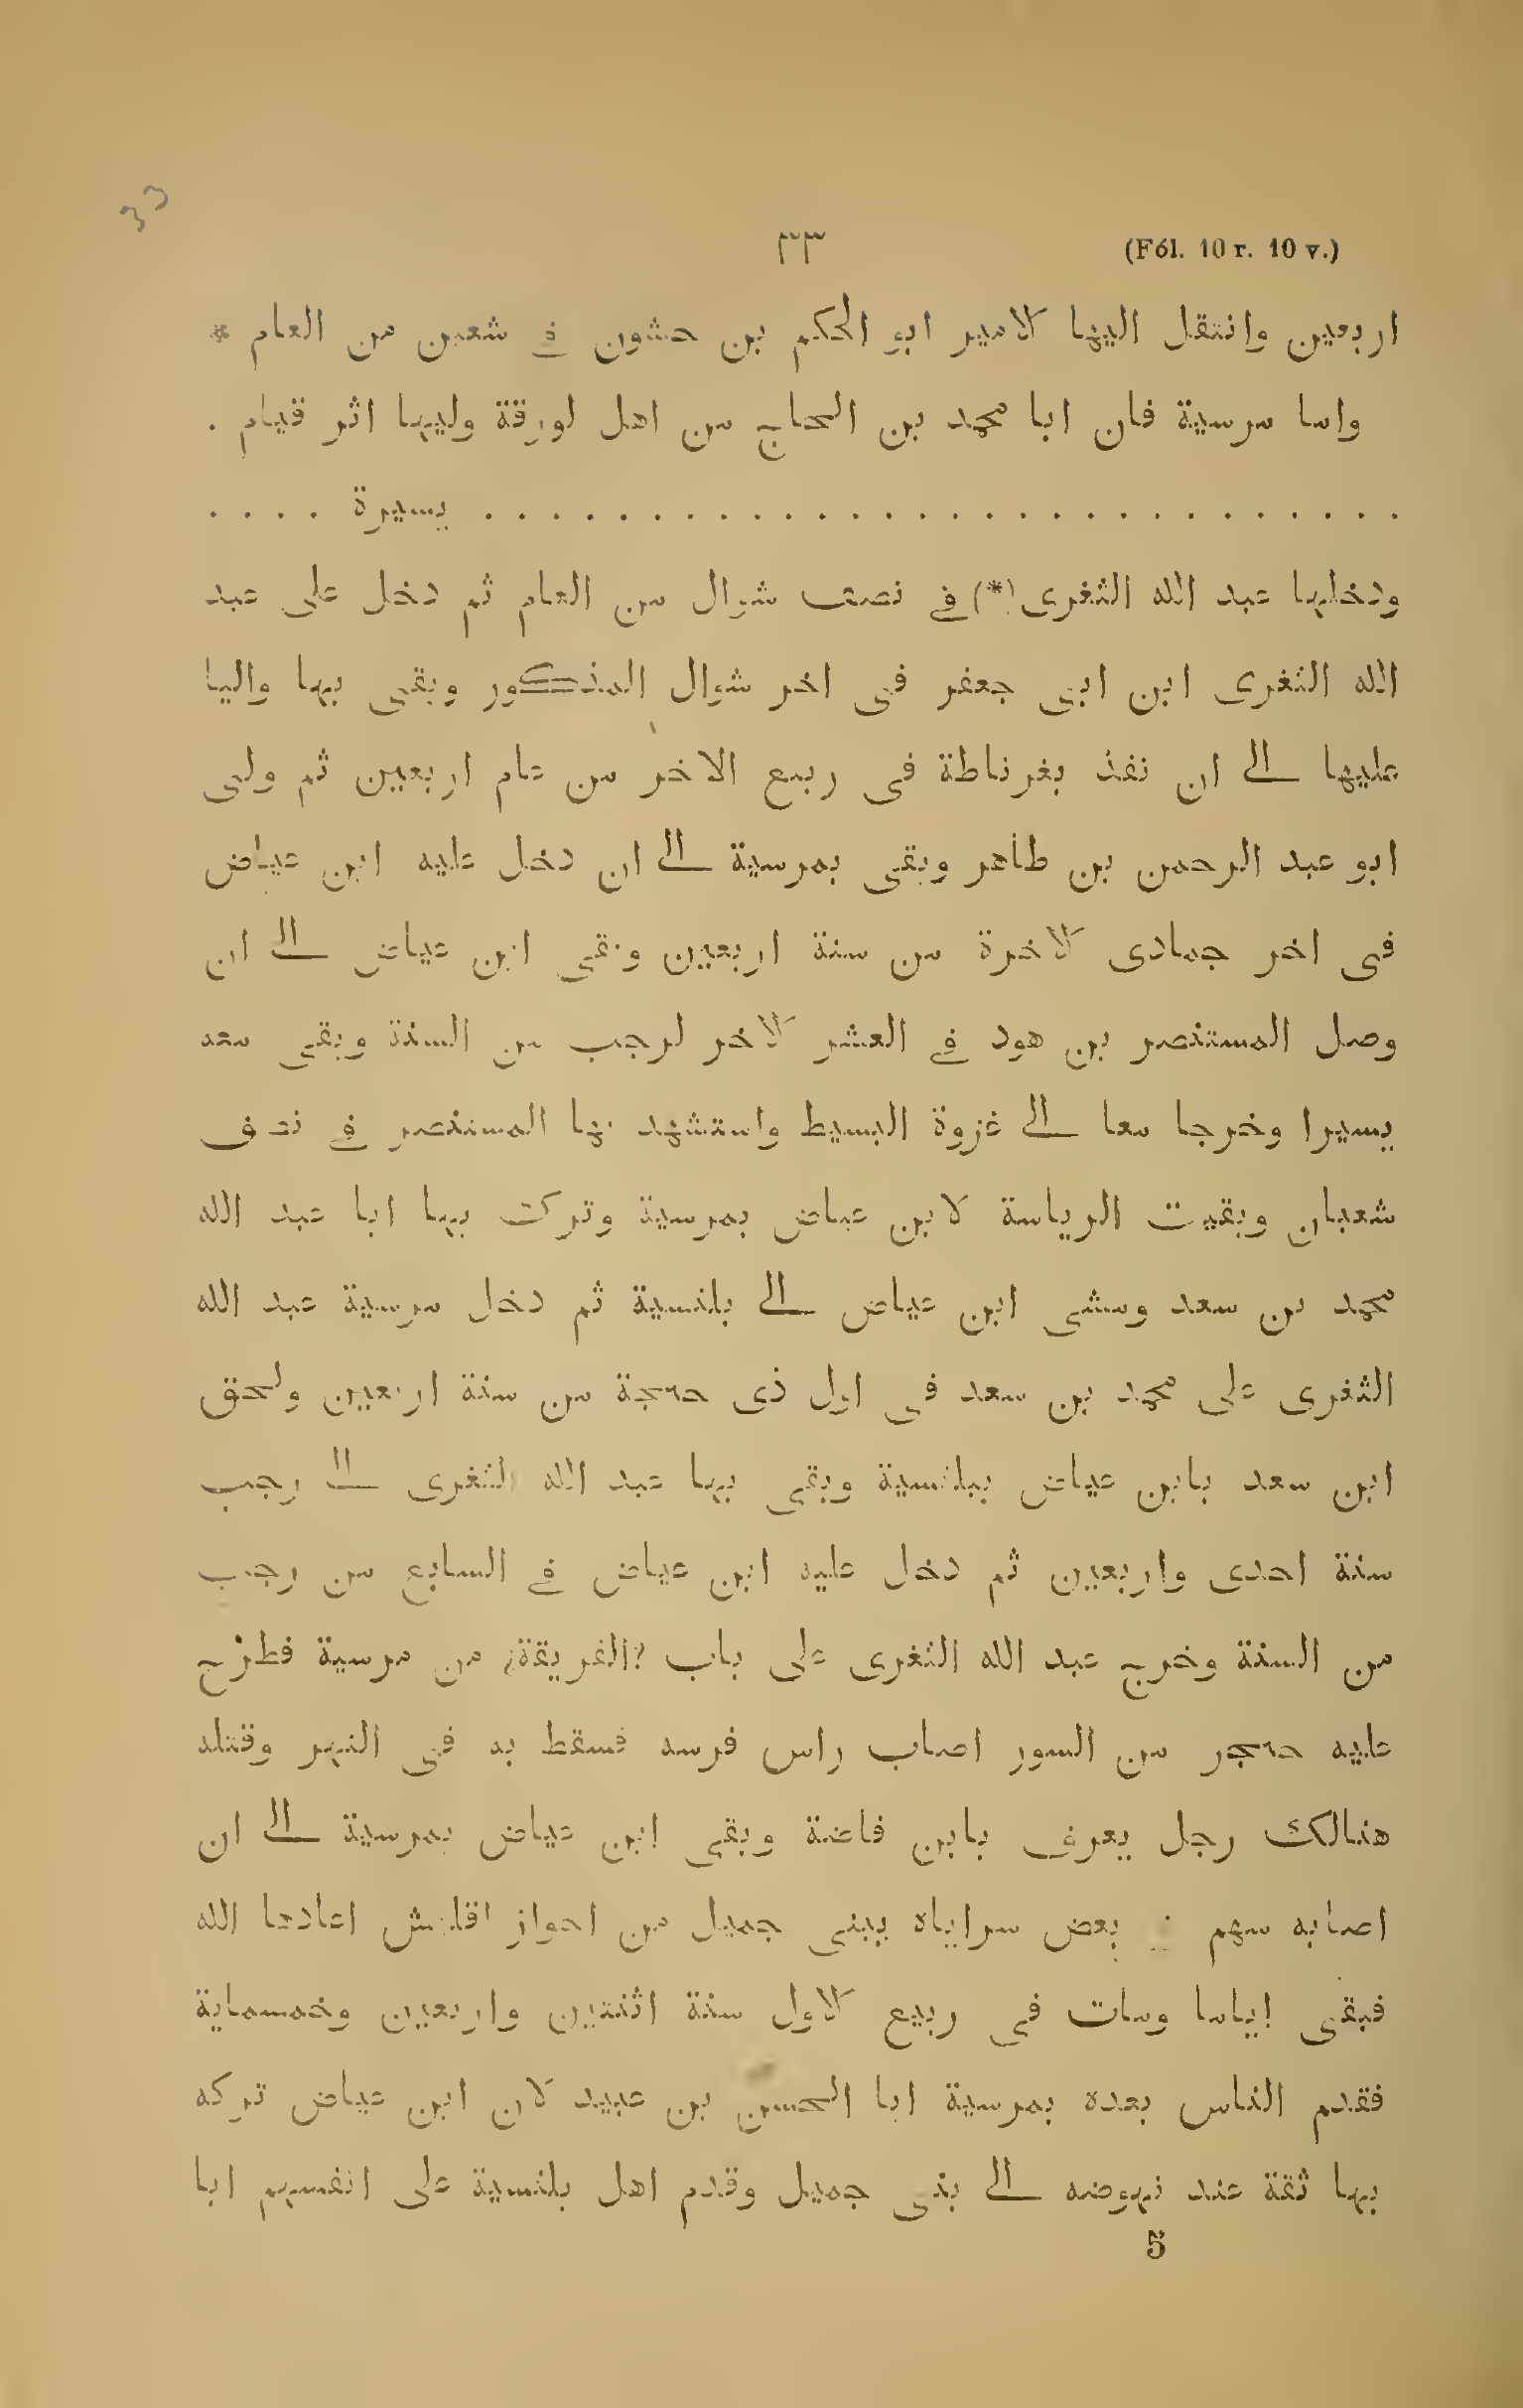 33
(Fól. 10 r. 10 v.)
٣٣
اربعين وانتقل اليها الامير ابو الحكم بن حشون فى شعبن من العام *
واما مرسية فان ابا محمد بن الحاج من اهل لورقة وليها اثر قيام .
. . . . . . . . . . . . . . . . . . . . . . . . . . . . يسيرة . . . .
ودخلها عبد الله الثغرى (*) فى نصف شوال من العام ثم دخل على عبد
الله الثغرى ابن ابى جعفر فى اخر شوال المذكور وبقى بها واليا
عليها الى ان نفذ بغرناطة فى ربيع الاخر من عام اربعين ثم ولى
ابو عبد الرحمن بن طاهر وبقى بمرسية الى ان دخل عليه ابن عياض
فى اخر جمادى الاخرة من سنة اربعين وبقى ابن عياض الى ان
وصل المستنصر بن هود فى العشر الاخر لرجب من السنة وبقى معه
يسيرا وخرجا معا الى غزوة البسيط واستشهد بها المستنصر فى نصف
شعبان وبقيت الرياسة لابن عياض بمرسية وترك بها ابا عبد الله
محمد بن سعد ومشى ابن عياض الى بلنسية ثم دخل مرسية عبد الله
الثغرى على محمد بن سعد فى اول ذى حجة من سنة اربعين ولحق
ابن سعد بابن عياض ببلنسية وبقى بها عبد الله الثغرى الى رجب
سنة احدى واربعين ثم دخل عليه ابن عياض فى السابع من رجب
من السنة وخرج عبد الله الثغرى على باب ?الفريقة¿ من مرسية فطرح
عليه حجر من السور اصاب راس فرسه فسقط به فى النهر وقتله
هنالك رجل يعرف بابن فاضة وبقى ابن عياض بمرسية الى ان
اصابه سهم بعض سراياه ببنى جميل من احواز اقليش اعادها الله
فبقى اياما ومات فى ربيع الاول سنة اثنتين واربعين وخمسماية
فقدم الناس بعده بمرسية ابا الحسن بن عبيد لان ابن عياض تركه
بها ثقة عند نهوضه الى بنى جميل وقدم اهل بلنسية على انفسهم ابا
5